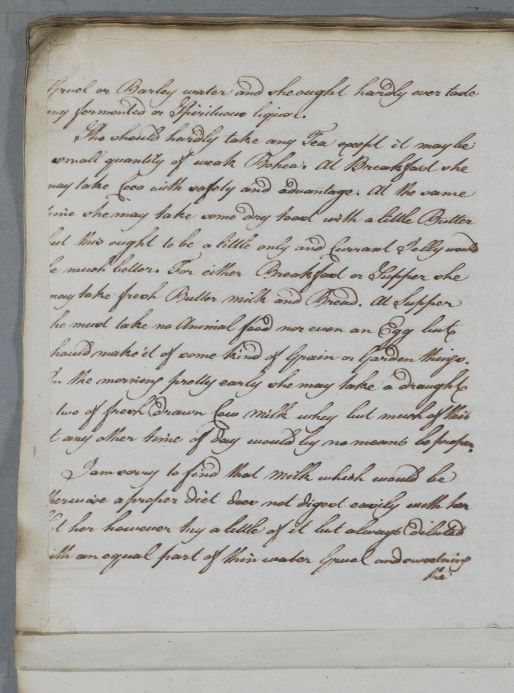 Gruel or Barley water and she ought hardly ever taste
any fermented or Spirituous liquor.
She should hardly take any Tea except it may be
small quantity of weak Bohea. At Breakfast she
may take Coco with safety and advantage. At the same
time she may take some dry toast with a little Butter
but this ought to be a little only and Currant Jelly would
be much better. For either Breakfast or Supper she
may take fresh Butter milk and Bread. At Supper
she must take no Animal food nor even an Egg but
should make it of some kind of Grain or Garden things.
In the morning pretty early she may take a draught
two of fresh drawn Cow Milk whey but much of this
at any other time of day would by no means be proper.
I am sorry to find that Milk which would be
otherwise a proper diet does not digest easily with her
let her however try a little of it but always diluted
with an equal part of thin water Gruel and sweetning
the